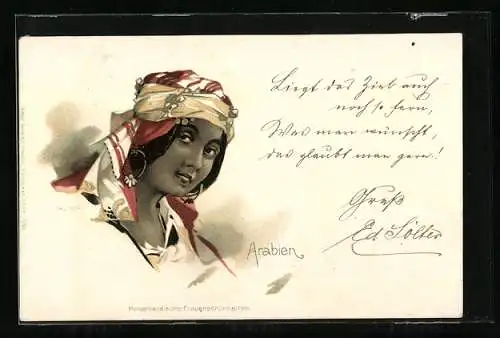 Liegt das Ziel auch
noch so fern,
Was man wünscht,
das glaubt man gern!
Gruß
Ed. Sölter
Arabien